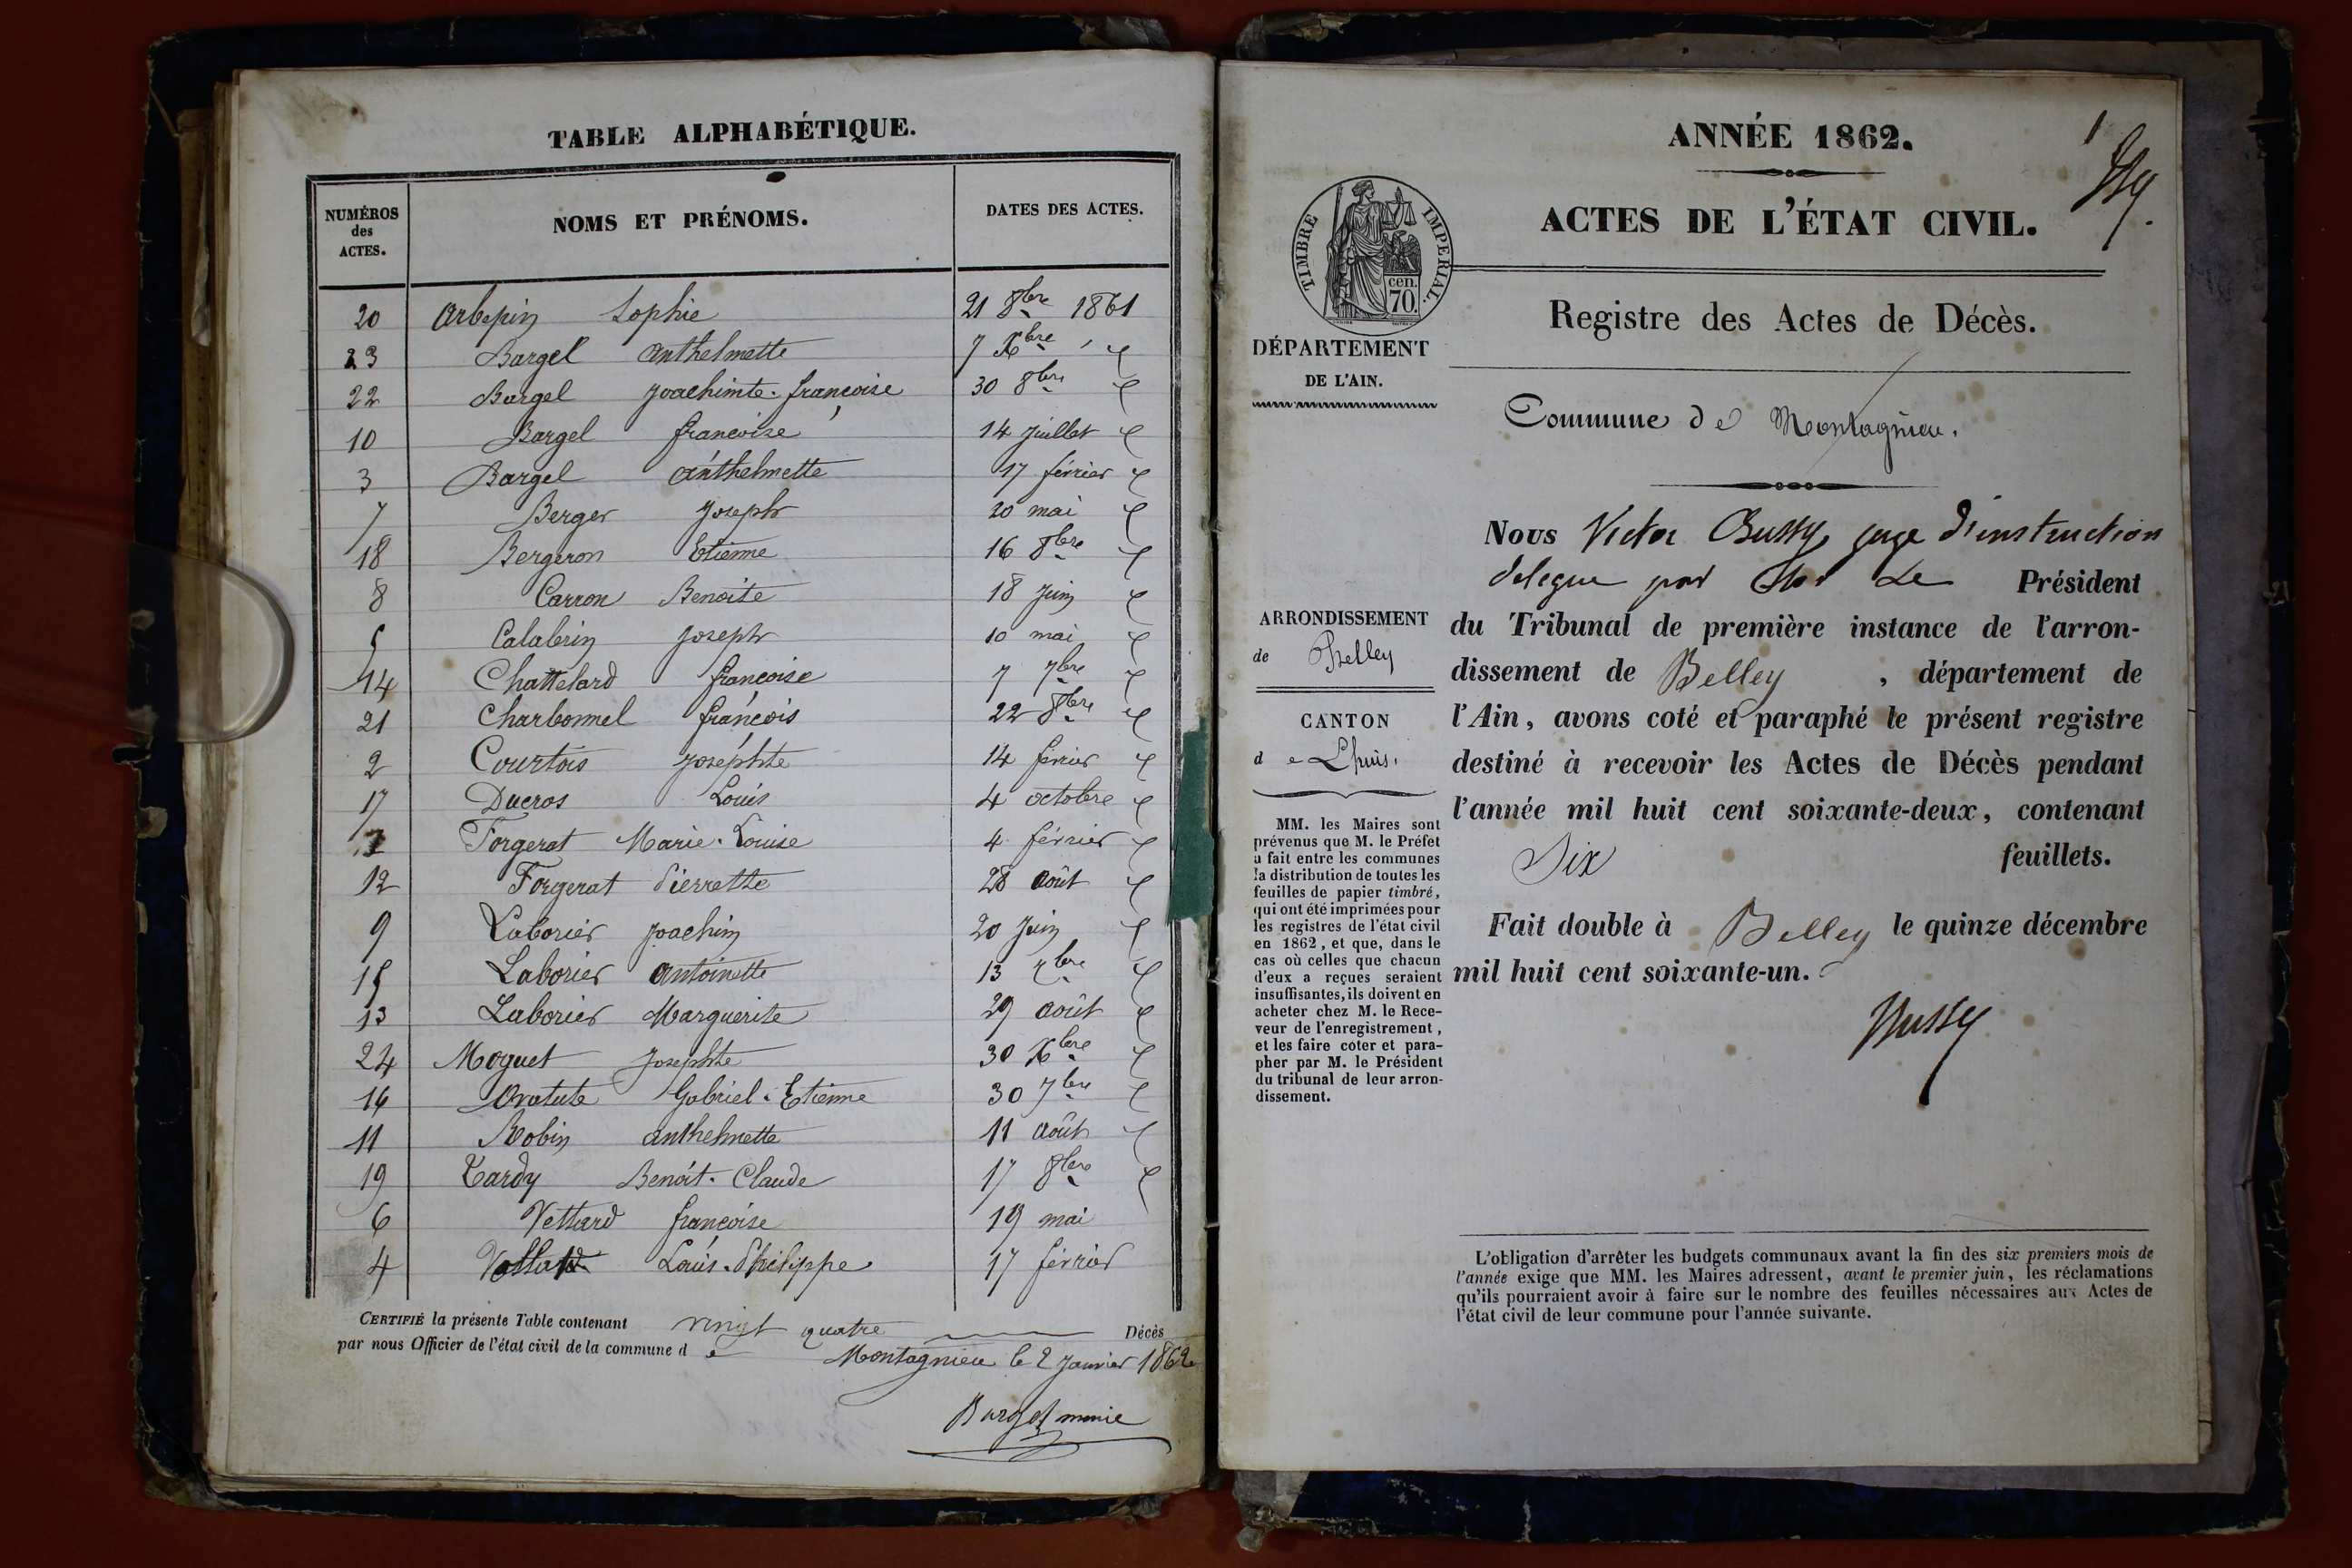 TABLE ALPHABÉTIQUE.
NUMÉROS des ACTES. NOMS ET PRÉNOMS. DATES DES ACTES.
20 Arbepin Sophie 21 8bre 1861
23 Bargel Anthelmette 7 Xbre
22 Bargel Joachimte. françoise 30 8bre
10 Bargel françoise 14 Juillet
3 Bargel Anthelmette 17 février
7 Berger Joseph 20 mai
18 Bergeron Etienne 16 8bre
8 Carron Benoite 18 Juin
5 Calabrin Joseph 10 mai
14 Chattelard françoise 7 7bre
21 Charbonnel françois 22 8bre
2 Courtois Joséphte 14 février
17 Ducros Louis 4 octobre
1 Forgerat Marie. Louise 4 février
12 Forgerat Pierrette 28 août
9 Laborier Joachim 20 Juin
15 Laborier Antoinette 13 7bre
13 Laborier Marguerite 29 août
24 Moguet Josephte 30 Xbre
16 Gabriel. Etienne 30 7bre
11 Robin anthelmette 11 août
19 Tardy Benoit. Claude 17 8bre
6 Vettard françoise 19 mai
4 Vettard Louis. Philippe 17 février
CERTIFIÉ la présente Table contenant vingt quatre Décès
par nous Officier de l'état civil de la commune d e Montagnieu le 2 Janvier 1862
Bargel maire
1
ANNÉE 1862.
ACTES DE L'ÉTAT CIVIL.
TIMBRE IMPERIAL.
cen.
70.
Registre des Actes de Décès.
DÉPARTEMENT
DE L'AIN.
Commune de Montagnieu.
ARRONDISSEMENT
de Belley
CANTON
d e Lhuis.
MM. les Maires sont
prévenus que M. le Préfet
a fait entre les communes
la distribution de toutes les
feuilles de papier timbré,
qui ont été imprimées pour
les registres de l'état civil
en 1862, et que, dans le
cas où celles que chacun
d'eux a reçues seraient
insuffisantes, ils doivent en
acheter chez M. le Rece-
veur de l'enregistrement,
et les faire coter et para-
pher par M. le Président
du tribunal de leur arron-
dissement.
NOUS Victor Bussy, juge d'instruction
delegue par Mr Le Président
du Tribunal de première instance de l'arron-
dissement de Belley, département de
l'Ain, avons coté et paraphé le présent registre
destiné à recevoir les Actes de Décès pendant
l'année mil huit cent soixante-deux, contenant
Six feuillets.
Fait double à Belley le quinze décembre
mil huit cent soixante-un.
Bussy
L'obligation d'arrêter les budgets communaux avant la fin des six premiers mois de
l'année exige que MM. les Maires adressent, avant le premier juin, les réclamations
qu'ils pourraient avoir à faire sur le nombre des feuilles nécessaires aux Actes de
l'état civil de leur commune pour l'année suivante.